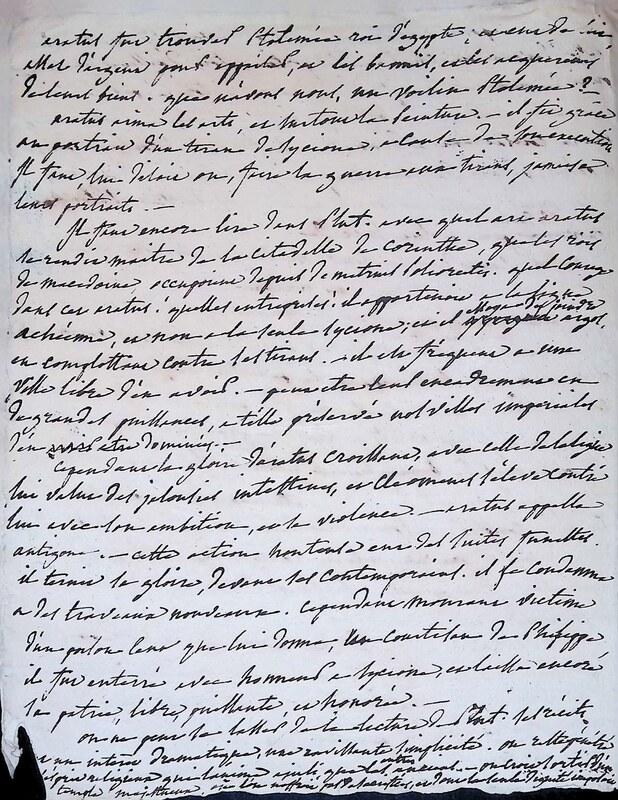 aratus fut trouver Ptolemée roi d'egypte, et eut de lui
assez d'argent pour appaiser, et les bannis, et les acquereurs
de leurs biens. que n'avons nous, un voisin Ptolemée?
aratus aima les arts, et surtout la peinture. - il fit grace
au portrait d'un tiran de sycione, a cause de son execution
Il faut, lui disoit on, faire la guerre aux tirans, jamais a
leurs portraits. -
Il faut encore lire dans Plut. avec quel art aratus
se rendit maitre de la citadelle de corinthe, que les rois
de macedoine occupoient depuis Demetrius Poliorcetes. quel courage
dans cet aratus! quelles entreprises! il appartenoit a la ligue
acheenne, et non a la seule sycione, et il argos,
en complottant contre les tirans. - il est fréquent a une
ville libre d'en avoir. - peut etre leur encadrement en
de grandes puissances, a t'elle préservé nos villes imperiales
d'en etre dominées. -
Cependant la gloire d'aratus croissant, avec celle de la ligue
lui valut des jalousies intestines, et Cléomenes s'éleva contre
lui avec son ambition, et sa violence. - aratus appella
antigone. - cette action honteuse eut des suites funestes.
il ternit sa gloire, devant ses contemporains. il se condamna
a des travaux nouveaux. cependant mourant victime
d'un poison lent que lui donna, un courtisan de Philippe
il fut enterré avec honneur a sycione, et laissa encore
sa patrie, libre, puissante, et honorée. -
on ne peut se lasser de la lecture de Plut. ses récits
ont un interet dramatique, une ravissante simplicité. on
religieux que
temple